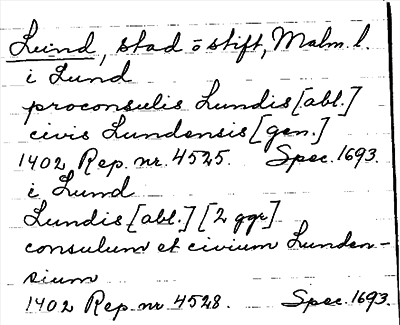 Lund, stad o stift, Malm. l.
i Lund
proconsulis Lundis [abl.]
civis Lundensis [gen.]
1402 Rep. nr. 4525. Spec. 1693.
i Lund
Lundis [abl.] [2 ggr]
consulum et civium Lunden-
sium
1402 Rep. nr. 4528. Spec. 1693.